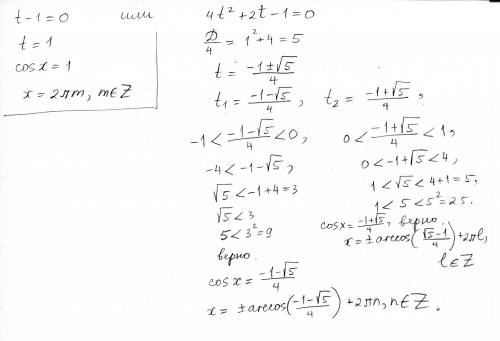 t-1=0 или 4t²+2t-1=0
t=1
cosx=1
x=2πm, m∈Z
D/4 = 1²+4=5
t = (-1±√5)/4
t₁ = (-1-√5)/4, t₂ = (-1+√5)/4,
-1 < (-1-√5)/4 < 0,
-4 < -1-√5,
√5 < -1+4=3
√5 < 3
5 < 3² = 9
верно.
cosx = (-1-√5)/4
x = ±arccos((-1-√5)/4) + 2πn, n∈Z.
0 < (-1+√5)/4 < 1,
0 < -1+√5 < 4,
1 < √5 < 4+1=5,
1 < 5 < 5² = 25.
cosx = (-1+√5)/4, верно.
x = ±arccos((√5-1)/4) + 2πl,
l∈Z